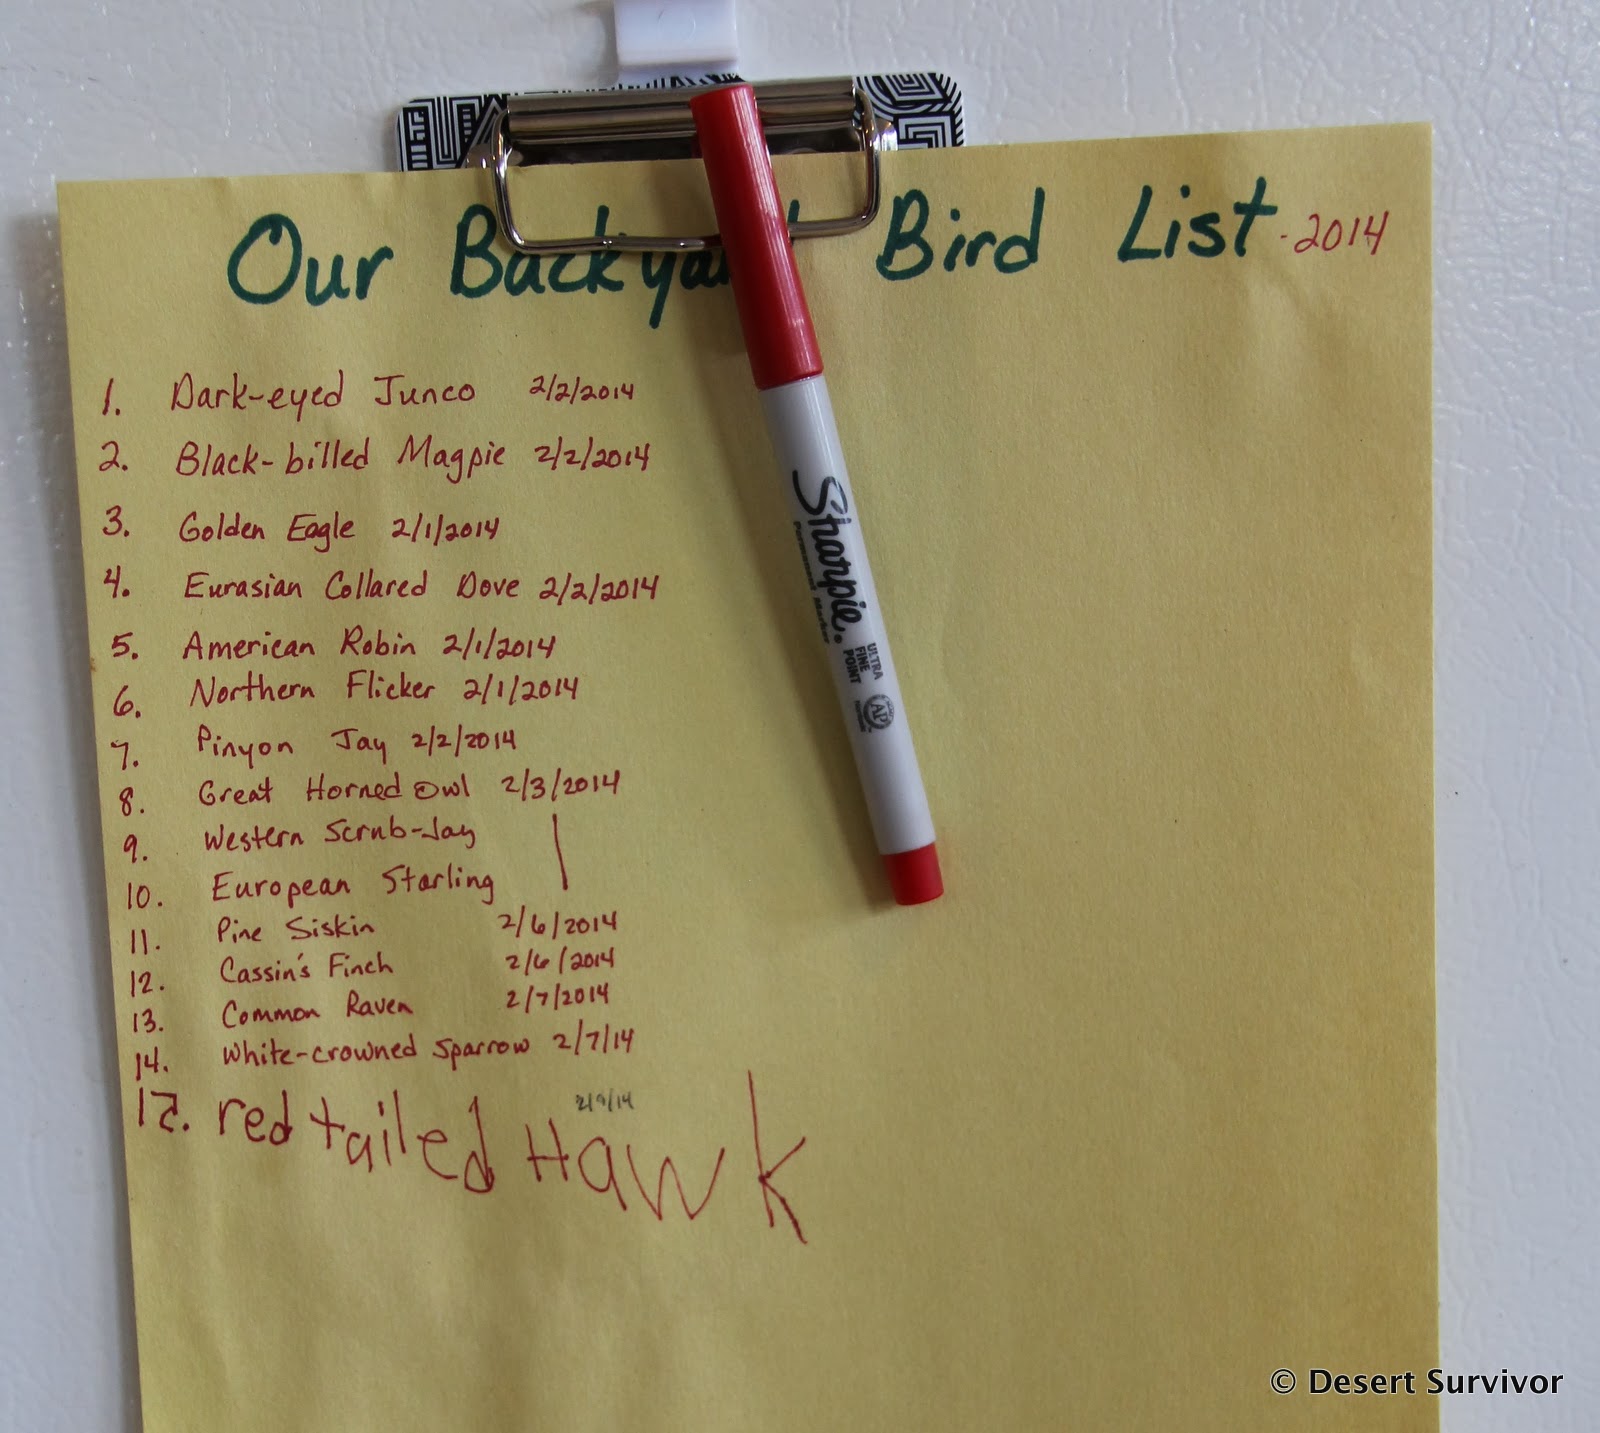 Our Backyard Bird List - 2014
1. Dark-eyed Junco 2/2/2014
2. Black-billed Magpie 2/2/2014
3. Golden Eagle 2/1/2014
4. Eurasian Collared Dove 2/2/2014
5. American Robin 2/1/2014
6. Northern Flicker 2/1/2014
7. Pinyon Jay 2/2/2014
8. Great Horned Owl 2/3/2014
9. Western Scrub-Jay |
10. European Starling
11. Pine Siskin 2/6/2014
12. Cassin's Finch 2/6/2014
13. Common Raven 2/7/2014
14. White-crowned Sparrow 2/7/14
15. red tailed Hawk 2/9/14
Sharpie.
Permanent Marker
ULTRA
FINE
POINT
AP
© Desert Survivor